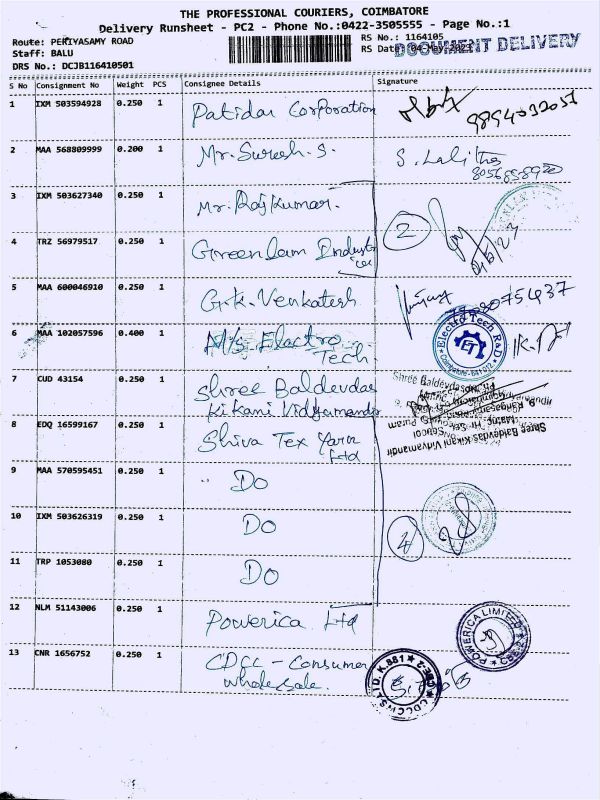 THE PROFESSIONAL COURIERS, COIMBATORE
Delivery Runsheet - PC2 - Phone No.:0422-3505555 - Page No.:1
Route: PERIYASAMY ROAD
Staff: BALU
DRS No.: DCJB116410501
RS No.: 1164105
RS Date: 04-May-2023
DOCUMENT DELIVERY
S No Consignment No Weight PCS Consignee Details Signature
1 IXM 503594928 0.250 1 Patidar Corporation 9894032057
2 MAA 568809999 0.200 1 Mr. Suresh. S. S. Lalitha
3 IXM 503627340 0.250 1 Mr. Rajkumar.
4 TRZ 56979517 0.250 1 Greenleam Industries
2
4/5/23
5 MAA 600046910 0.250 1 G.K. Venkatesh
6 MAA 102057596 0.400 1 M/s Electro Tech
Electro Tech R&D
ET
7 CUD 43154 0.250 1 Shree Baldevdas Kikani Vidyamandir
Shree Baldevdas Kikani Vidyamandir
8 EDQ 16599167 0.250 1 Shiva Tex Yarn Ltd
9 MAA 570595451 0.250 1 " Do
10 IXM 503626319 0.250 1 Do
4
11 TRP 1053080 0.250 1 Do
12 NLM 51143006 0.250 1 Powerica Ltd
POWERICA LIMITED
13 CNR 1656752 0.250 1 CDCC - Consumer wholesale.